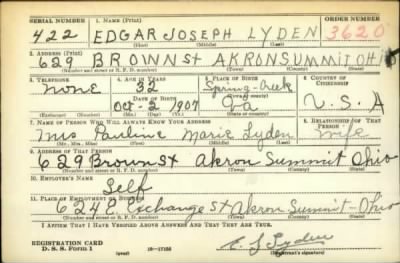 SERIAL NUMBER 1. NAME (Print) ORDER NUMBER
422 EDGAR JOSEPH LYDEN 3620
(First) (Middle) (Last)
2. ADDRESS (Print)
629 BROWN St AKRON SUMMIT OHIO
(Number and street or R. F. D. number) (Town) (County) (State)
3. TELEPHONE 4. AGE IN YEARS 5. PLACE OF BIRTH 6. COUNTRY OF CITIZENSHIP
None 32 Spring-Creek
DATE OF BIRTH (Town or county)
Oct-2 1907 Pa U.S.A
(Exchange) (Number) (Mo.) (Day) (Yr.) (State or country)
7. NAME OF PERSON WHO WILL ALWAYS KNOW YOUR ADDRESS 8. RELATIONSHIP OF THAT PERSON
Mrs Pauline Marie Lyden Wife
(Mr., Mrs., Miss) (First) (Middle) (Last)
9. ADDRESS OF THAT PERSON
629 Brown St Akron Summit Ohio
(Number and street or R. F. D. number) (Town) (County) (State)
10. EMPLOYER'S NAME
Self
11. PLACE OF EMPLOYMENT OR BUSINESS
624 E Exchange St Akron Summit-Ohio
(Number and street or R. F. D. number) (Town) (County) (State)
I AFFIRM THAT I HAVE VERIFIED ABOVE ANSWERS AND THAT THEY ARE TRUE.
REGISTRATION CARD
D. S. S. Form 1 (over) 16—17105 E. J. Lyden
(Registrant's signature)